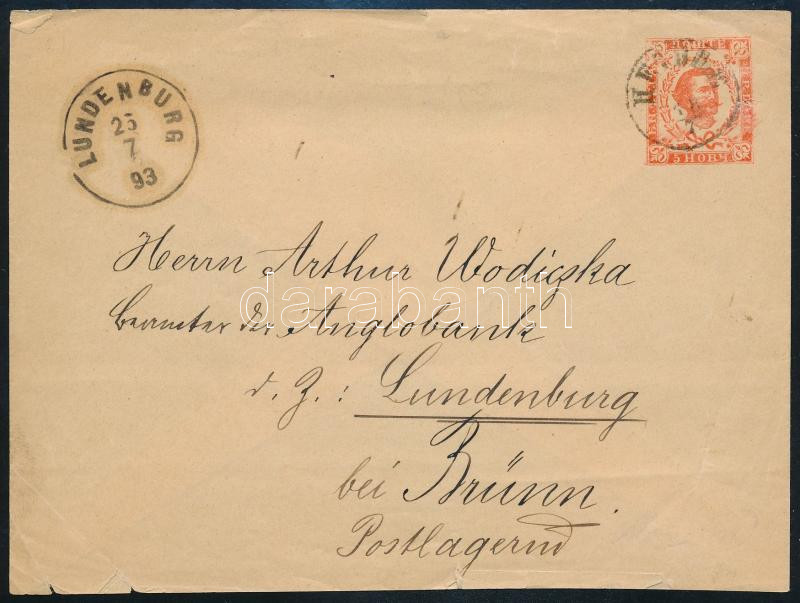 LUNDENBURG
25
7
93
5 НОВЧ
Herrn Arthur Wodiczka
Beamter der Anglobank
d. Z.: Lundenburg
bei Brünn.
Postlagernd
darabanth